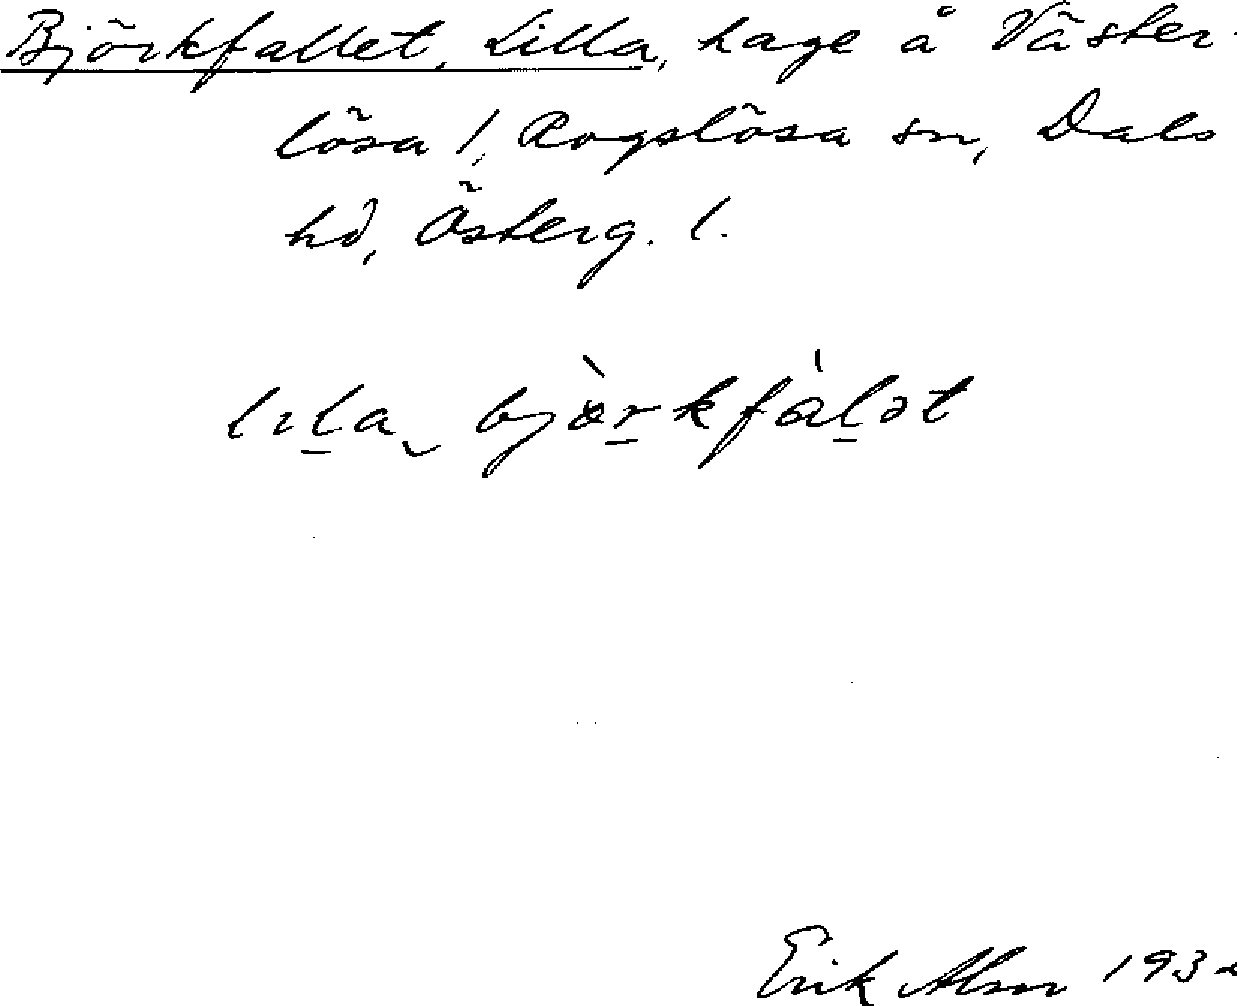 Björkfallet, Lilla, hage å Väster-
lösa 1, Rogslösa sn, Dals
hd, Österg. l.
lıl̠a‿ bjòr̠kfàl̠ət
Erik Alm 1932